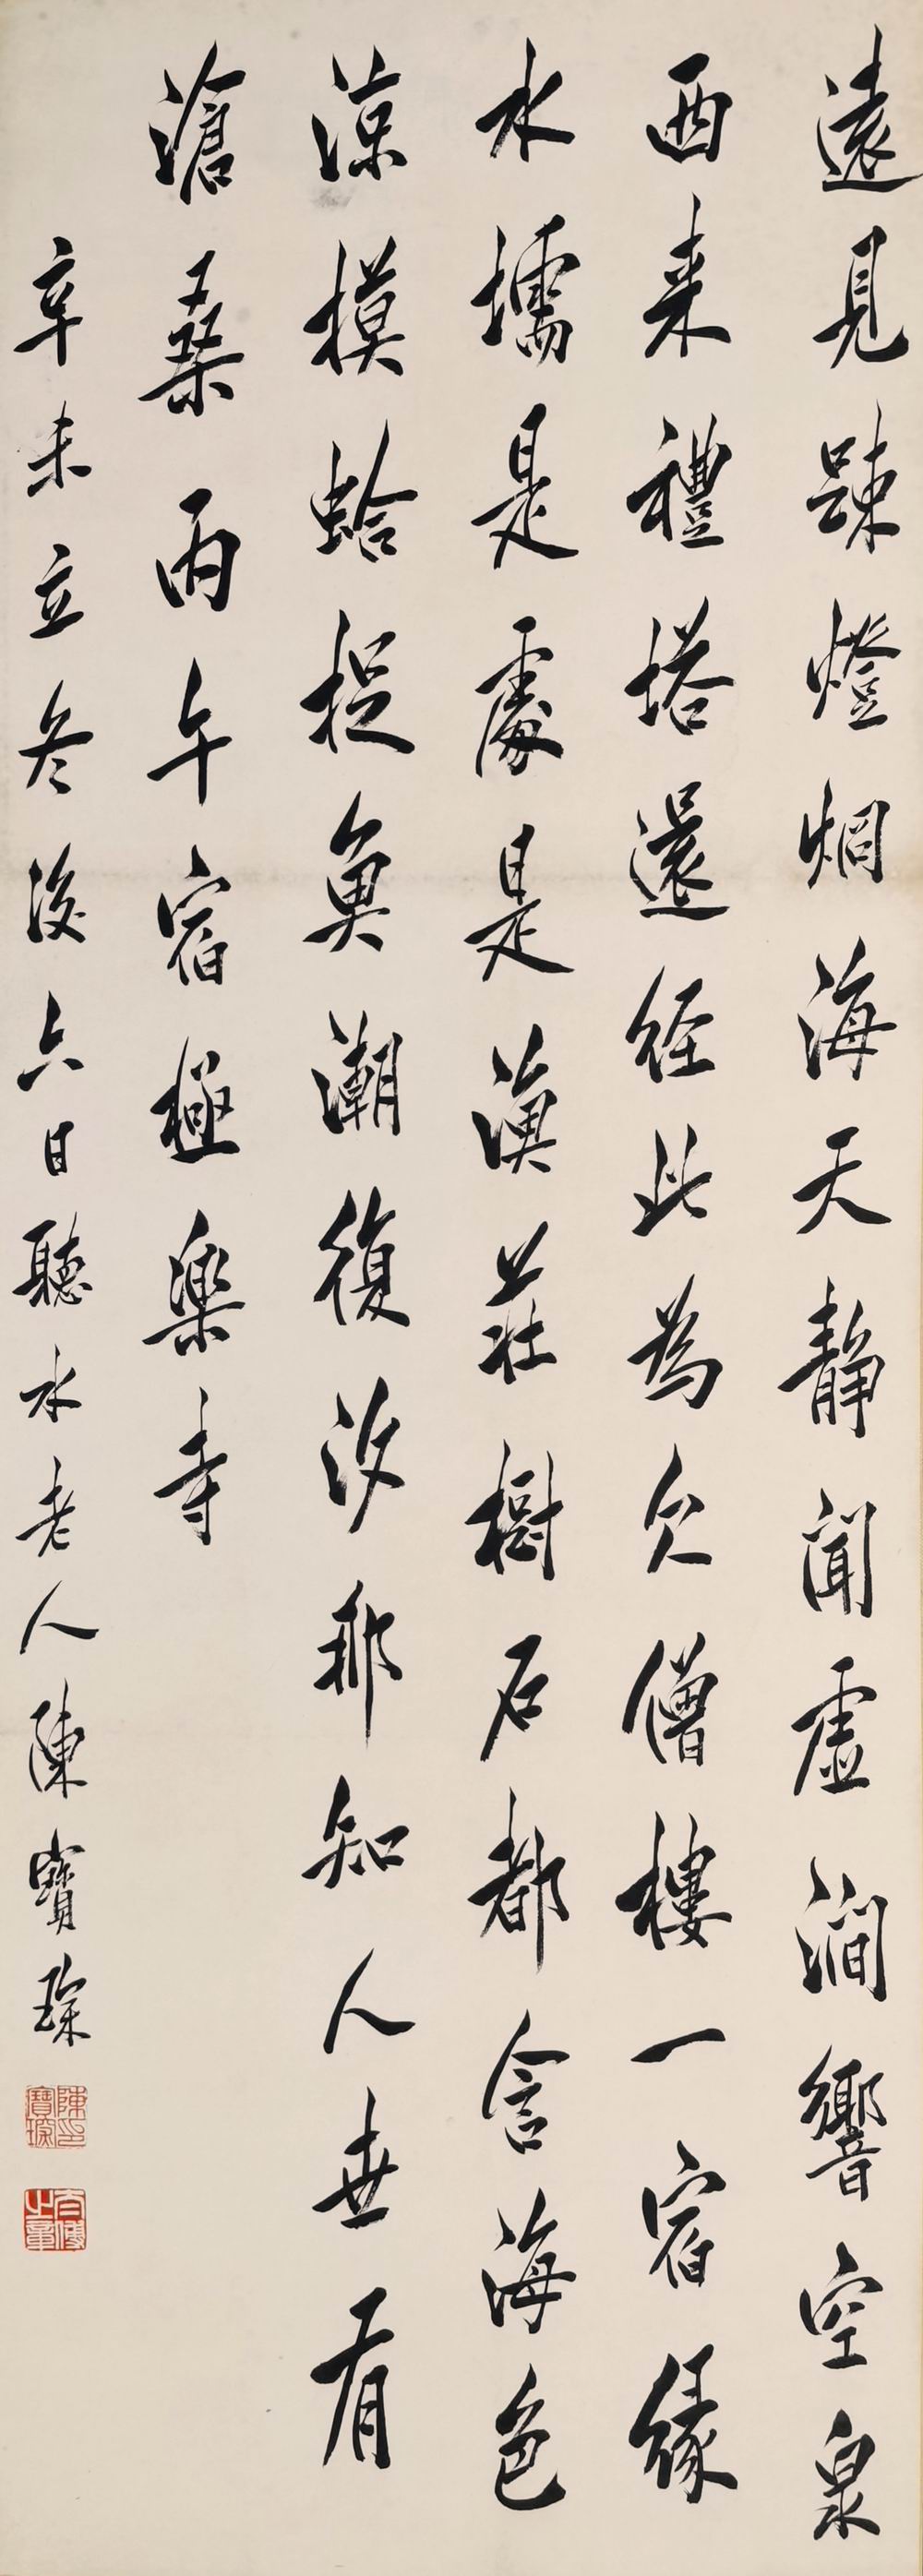 遠見踈燈烱海天靜聞虛澗響空泉
西來禮塔還經此為欠僧樓一宿緣
水壖是處是漁莊樹石都含海色
涼摸蛤捉魚潮復汐那知人世有
滄桑丙午宿極樂寺
辛未立冬後六日聽水老人陳寶琛
陳印寶琛
太傅之章